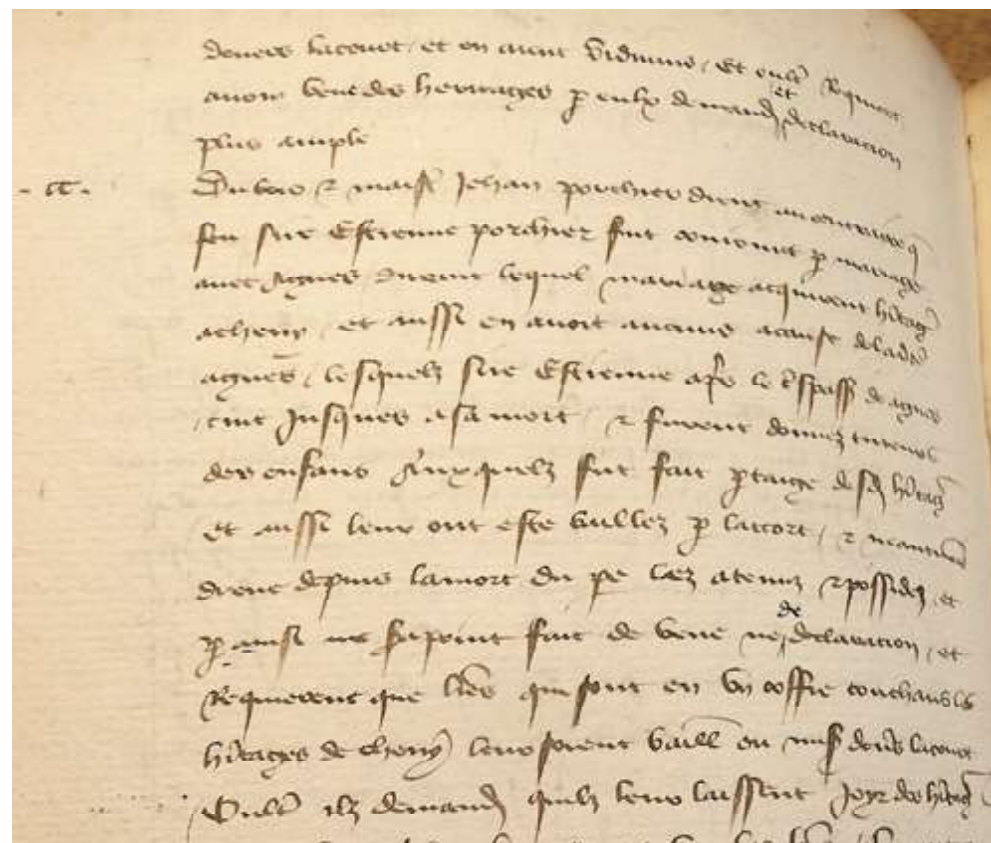 devers lacourt, et en aient vidimus, Et oultre Requierent
avoir veue des heritages p eulx demandez et declaracion
plus ample
Dubois & maistre Jehan porchier dient au contraire q
feu sire Estienne porchier fut conioinct p mariage
avec Agnes, durant lequel mariage acquirent heritages
acheny, et aussi en avoit aucuns acause deladite
agnes, lesquelz sire Estienne apres le trespas de agnes
tint Jusques asa mort, & furent donnez tuteurs
des enfans, auxquelz fut fait ptaige desd heritages
et aussi leur ont este baillez p laccort, &
dient depuis lamort du pere lez atenuz & possidez, et
p ainsi ne sera point fait de veue ne de declaracion, et
Requierent que lres qui sont en un coffre touchans les
heritages de cheny leur soient baillees ou mises devers lacourt
Oultre ilz demandent quilz leur laissent Joyr des heritages